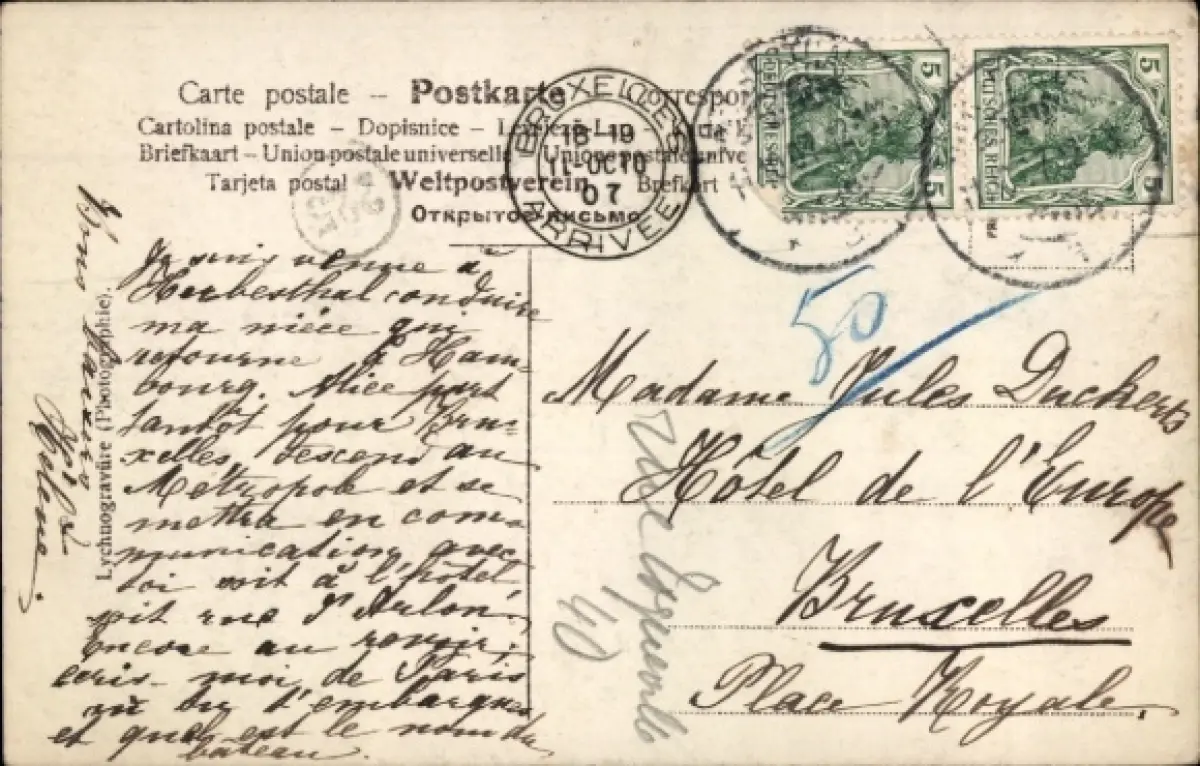 Carte postale – Postkarte
Cartolina postale – Dopisnice –
Briefkaart – Union postale universelle
Tarjeta postal Weltpostverein Brefkart
Открытое письмо
BRUXELLES
18-19
11-OCTO
07
ARRIVÉE
5 DEUTSCHES REICH 5
5 DEUTSCHES REICH 5
50
Je suis venue à
Herbesthal conduire
ma nièce qui
retourne à Ham-
bourg. Alice part
tantôt pour Bru-
xelles, descend au
Métropole et se
mettra en com-
munication avec
toi soit à l'hôtel
soit rue d'Arlon.
Encore au revoir;
écris-moi de Paris
où tu t'embarques
et quel est le nom du
bateau.
Hélène.
Lychnogravüre (Photographie).
Madame Jules Duckerts
Hôtel de l'Europe
Bruxelles
Place Royale.